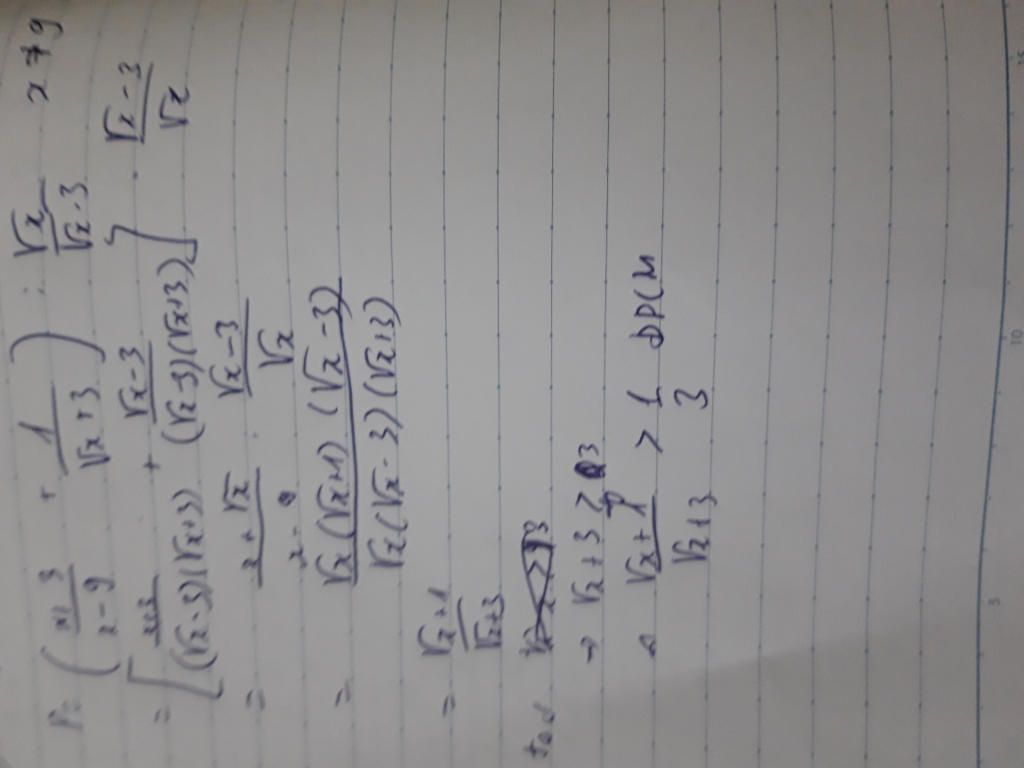 P = ( x+3 / x-9 + 1 / √x+3 ) : √x / √x-3 x ≠ 9
= [ x+3 / (√x-3)(√x+3) + √x-3 / (√x-3)(√x+3) ] . √x-3 / √x
= x+√x / x-9 . √x-3 / √x
= √x(√x+1)(√x-3) / √x(√x-3)(√x+3)
= √x+1 / √x+3
→ √x+3 ≥ 3
√x+1 / √x+3 > 1 / 3 ĐPCM